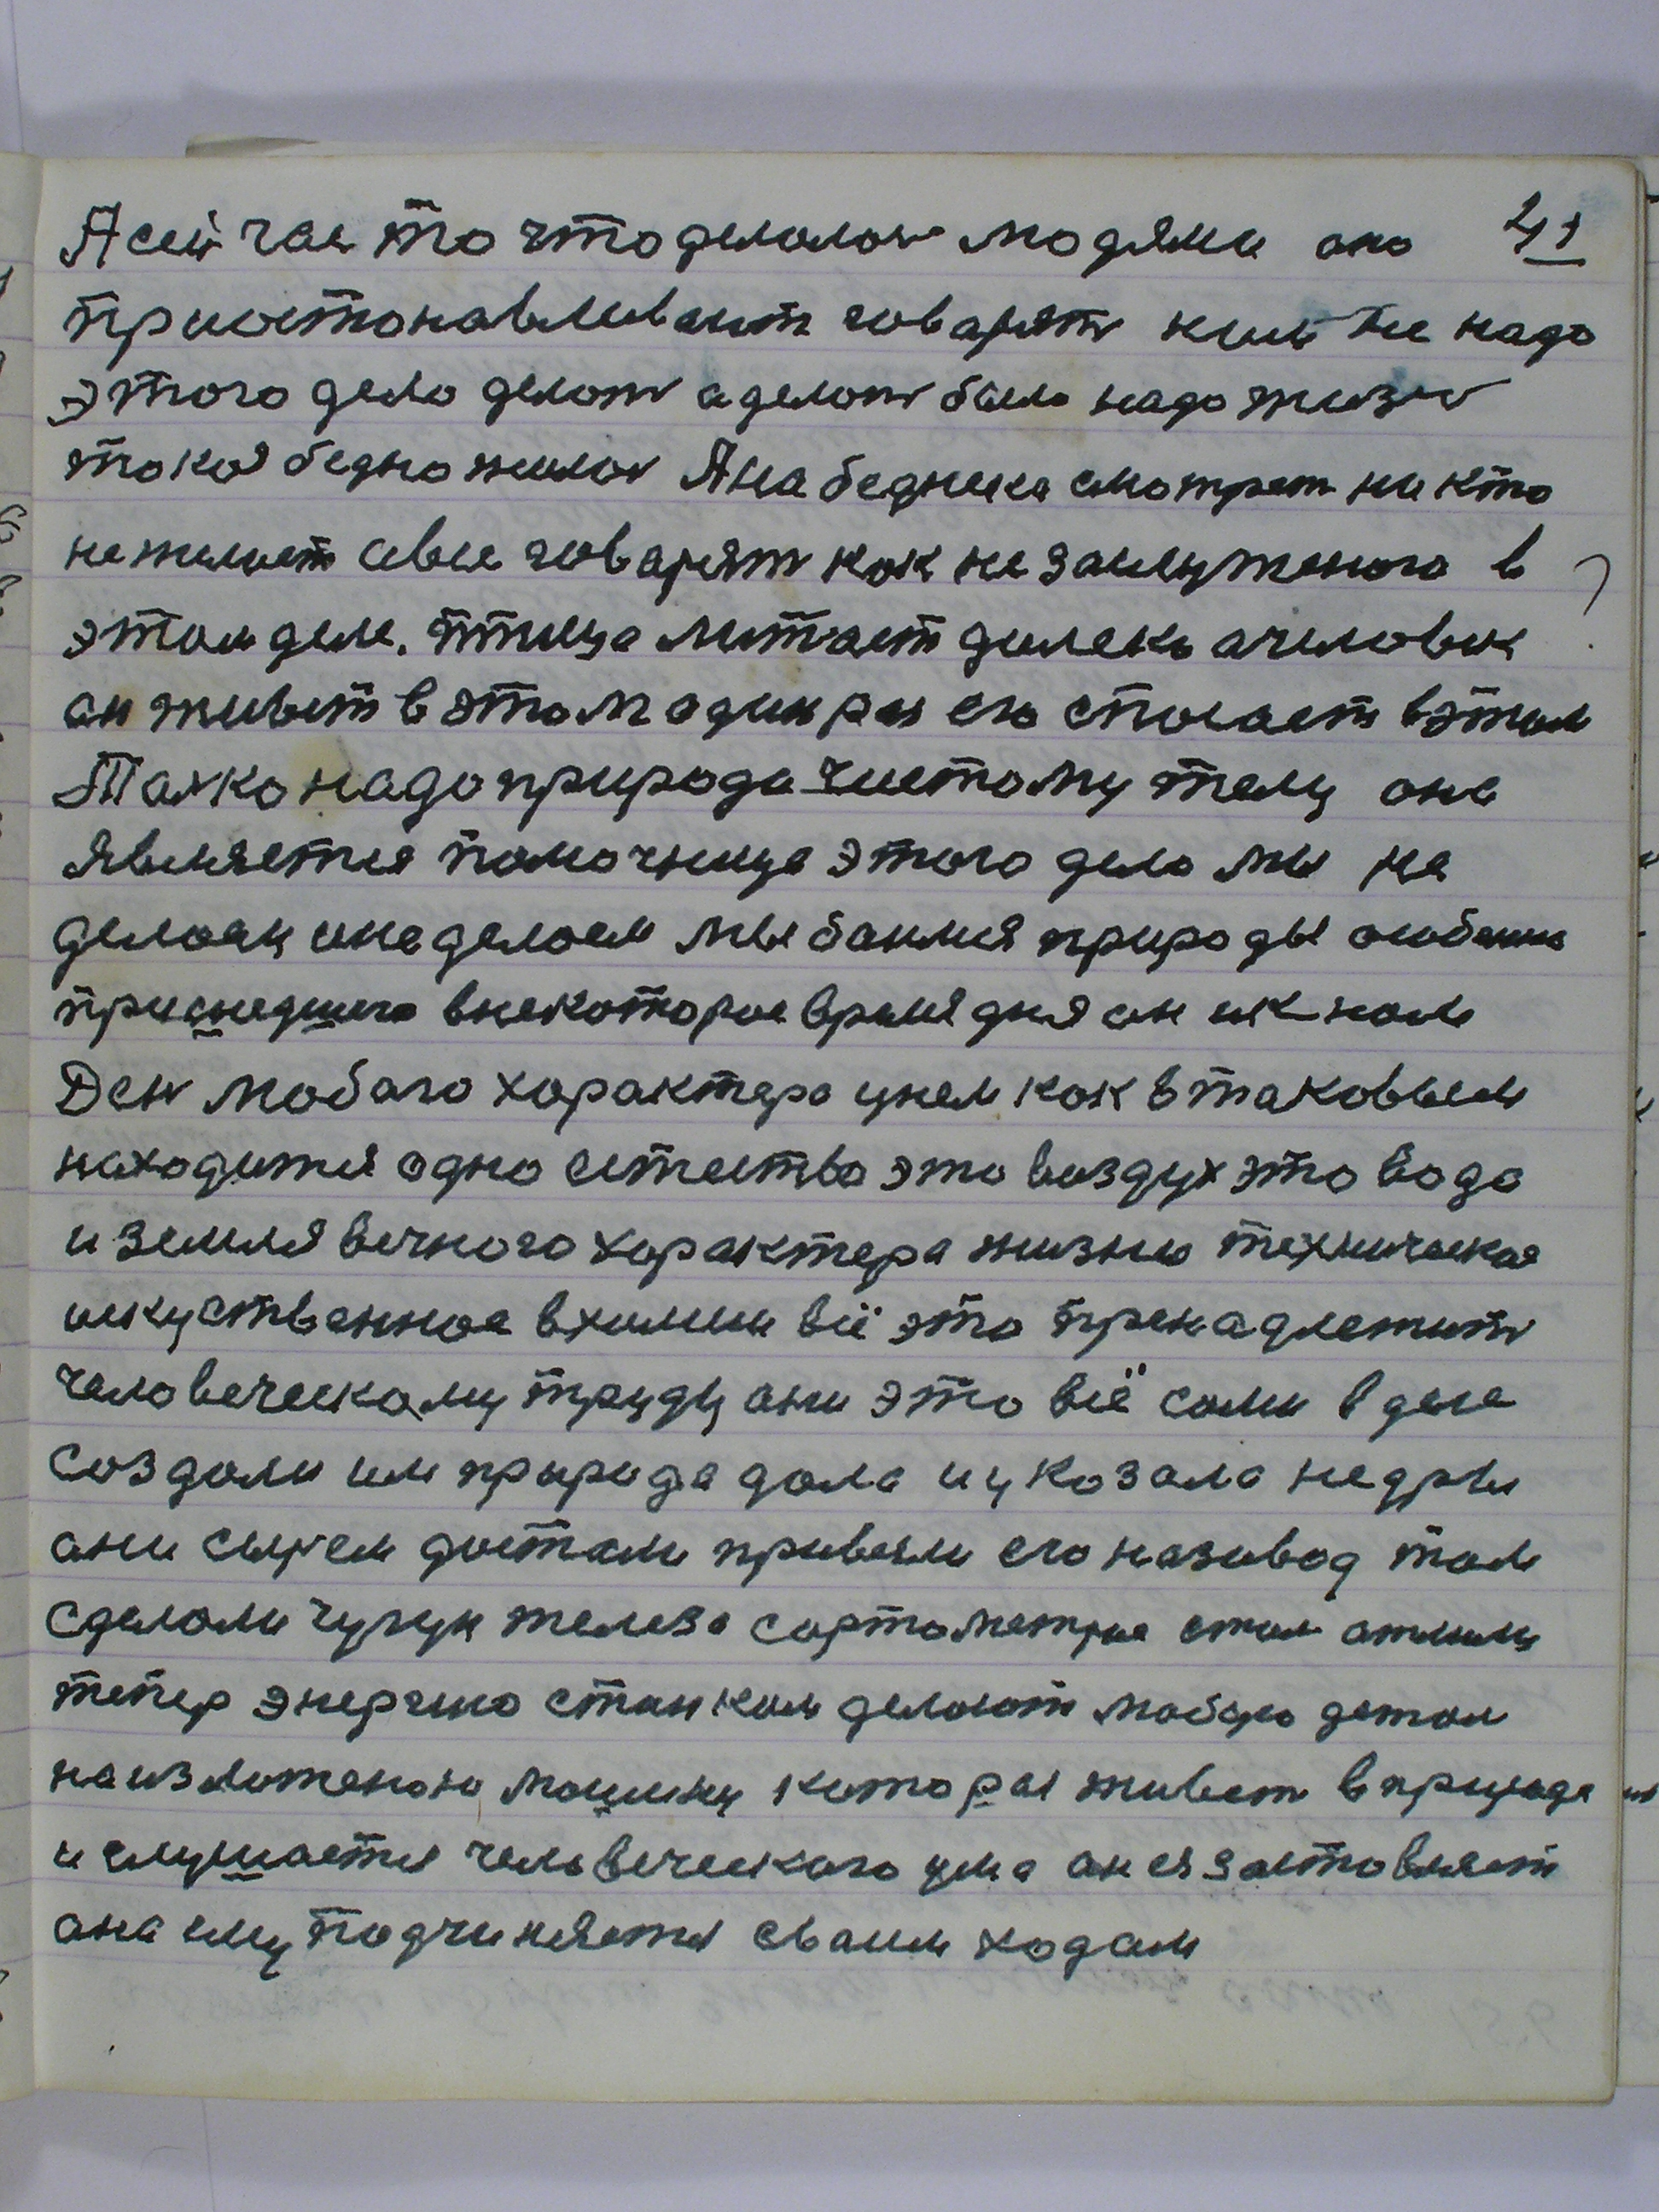 А сей час то что делолось людями оно 41
приостонавливаит говарят ни надо
этого дело делоть а делоть было надо жизнь
токоя бедно жилось А на бедника смотреть ни кто
не желает а все говарят как не заслуженого в
этом деле. птица литает далеко а человек
ан живет в этом один раз его спосает в этом
Талко надо природа чистому телу она
является помочница этого дело мы не
делоем и не делоем мы баимся природы особенно
пришедшего в некоторое время дня он и к нам
Ден любого характера у нем как в таковым
находится одно естество это воздух это вода
и земля вечного характера жизню техническая
искуственное в химии всё это пренадлежить
человеческому труду они это всё сами в деле
создали им прырода дала и указала недры
ани сырем достали привезли его на завод там
сделоли чугун железа сорта
тепер энергию станком делоют любую детал
на изложеною машину которая живет в природе
и слушается человеческого ума ан ея застовляет
ана ему подчиняется сваим ходам